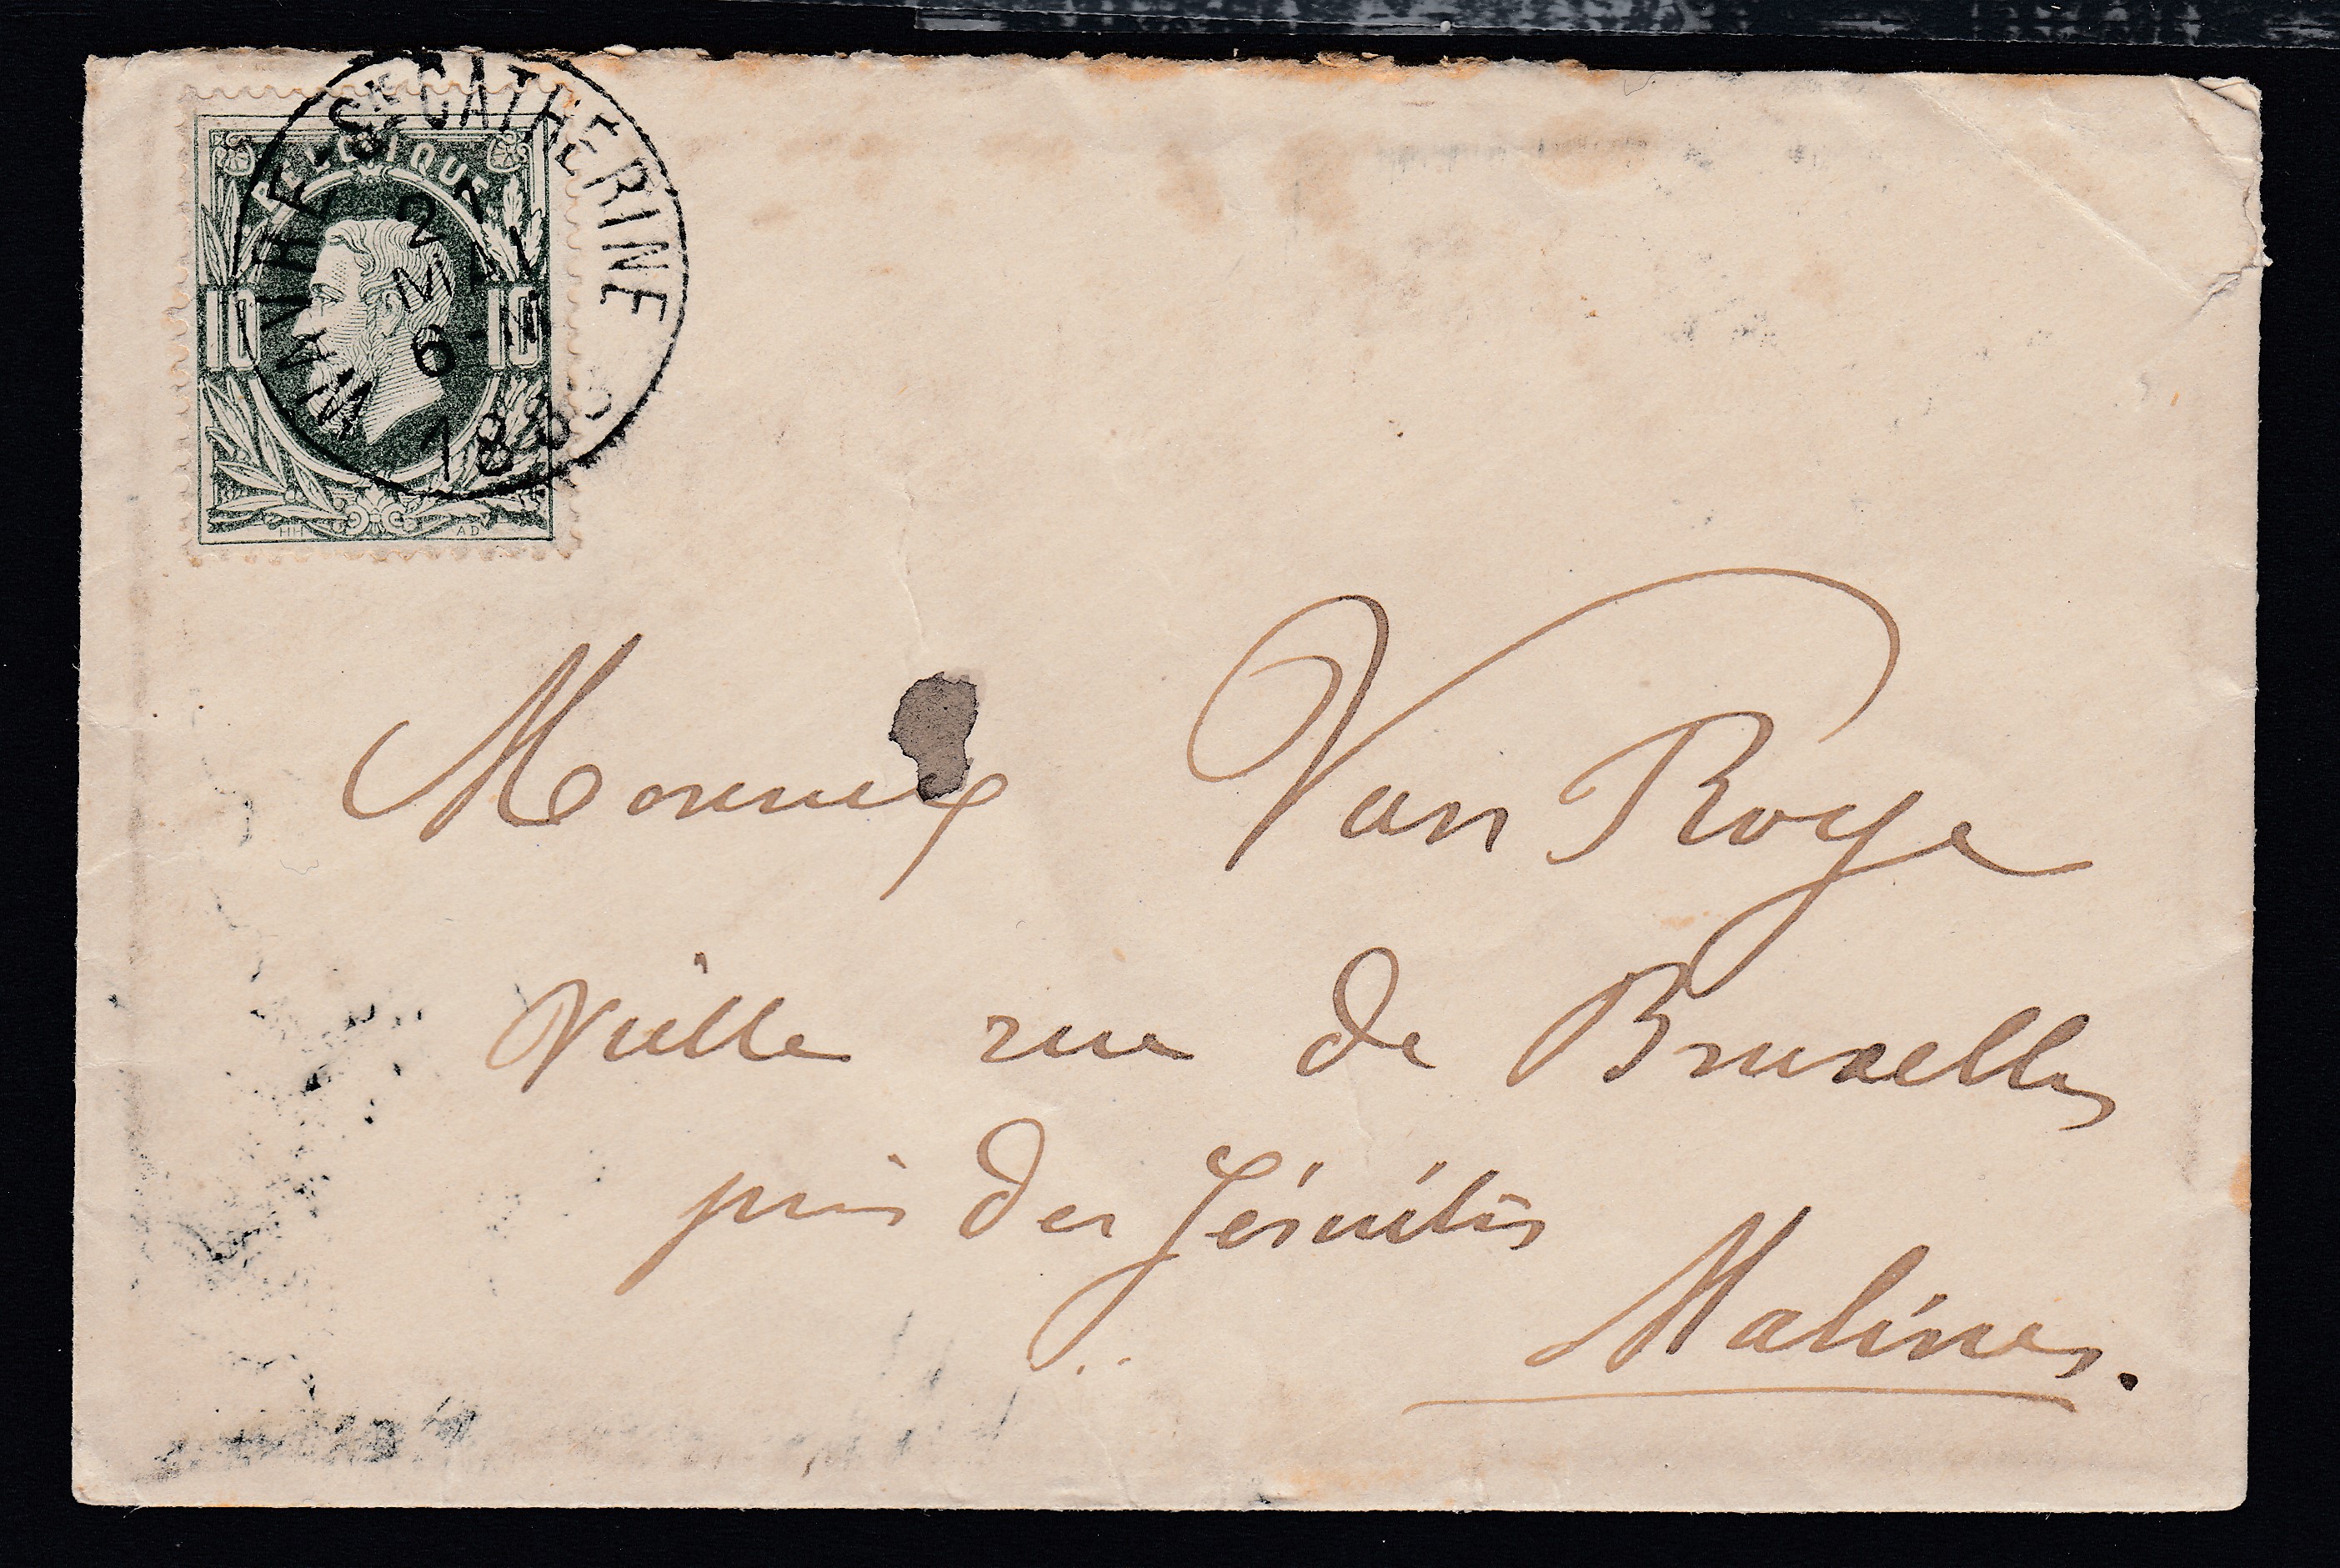 WAVRE-STE CATHERINE
BELGIQUE
MAI
6-M
10 10
188
HH AD
Monsieur Van Roye
Vieille rue de Bruxelles
près des Jésuites
Malines.